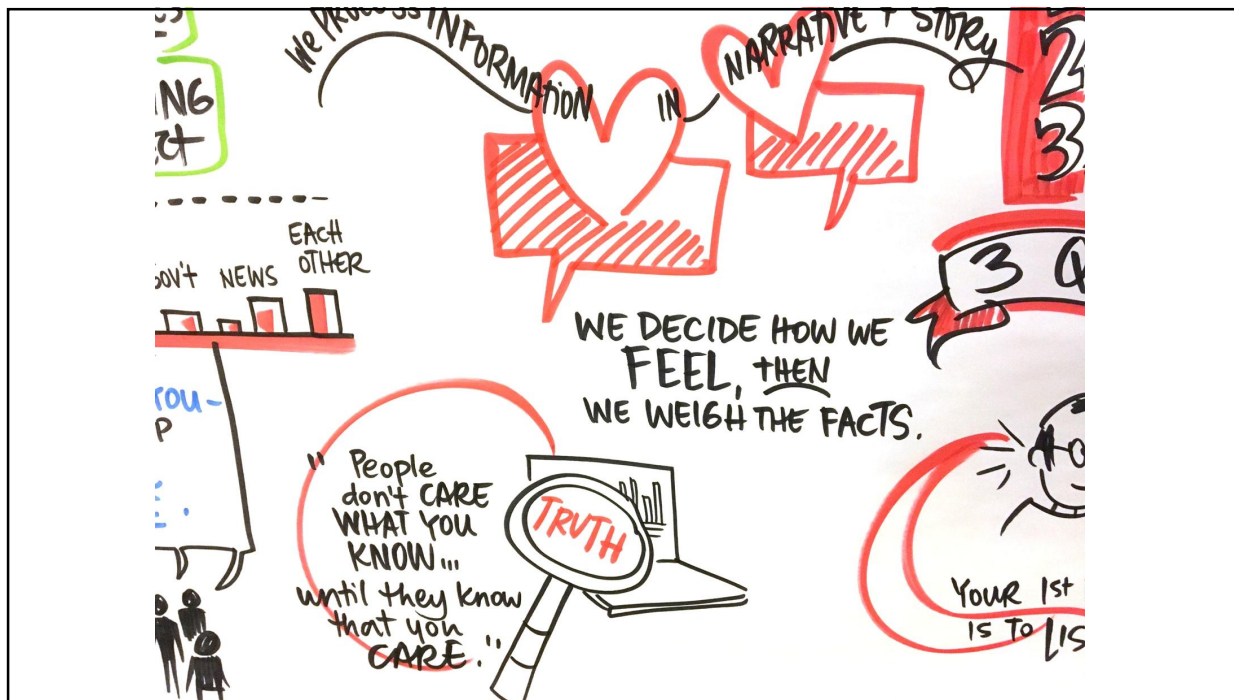 We PROCESS INFORMATION IN NARRATIVE + STORY
ING
EACH
OTHER
NEWS
WE DECIDE HOW WE
FEEL, THEN
WE WEIGH THE FACTS.
" People
don't CARE
WHAT YOU
KNOW...
until they know
that you
CARE."
TRUTH
2
3
3 Q
YOUR 1st
IS TO LIS